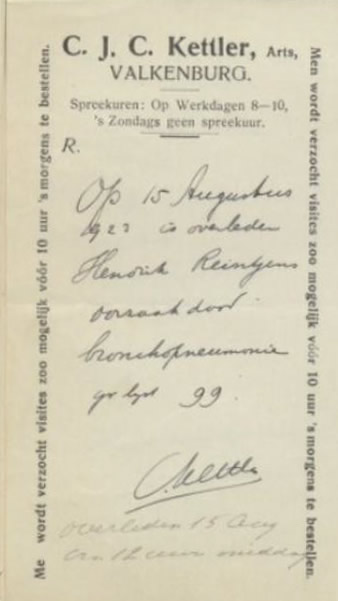 C. J. C. Kettler, Arts,
VALKENBURG.
Spreekuren: Op Werkdagen 8—10,
's Zondags geen spreekuur.
R.
Op 15 Augustus
1923 is overleden
Hendrik Reintjens
oorzaak dood
bronchopneumonie
lyst 99.
CKettler
overleden 15 Aug
12 uur middag
Me wordt verzocht visites zoo mogelijk vóór 10 uur 's morgens te bestellen.
Men wordt verzocht visites zoo mogelijk vóór 10 uur 's morgens te bestellen.